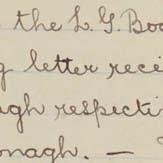 the L. G. Boa
g letter recei
ugh respecti
onagh. —